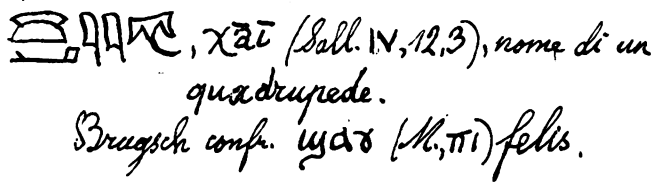 𓈍𓂝𓇋𓇋𓄛, χāī (Sall. IV, 12, 3), nome di un
quadrupede.
Brugsch confr. ϣⲁⲩ (M., ⲡⲓ) felis.